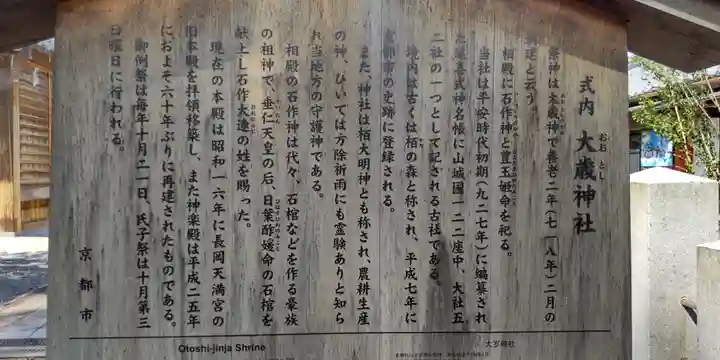 式内 大歳神社
おお とし
祭神は大歳神で養老二年(七一八年)二月の
建と云う。
相殿に石作神と豊玉姫命を祀る。
当社は平安時代初期(九二七年)に編纂され
喜式神名帳に山城国一二二座中、大社五
二社の一つとして記される古社である。
境内は古くは栢の森と称され、平成七年に
京都市の史跡に登録される。
また、神社は栢大明神とも称され、農耕生産
の神、ひいては方除祈雨にも霊験ありと知ら
れ当地方の守護神である。
相殿の石作神は代々、石棺などを作る豪族
の祖神で、垂仁天皇の后、日葉酢媛命の石棺を
献上し石作大連の姓を賜った。
現在の本殿は昭和一六年に長岡天満宮の
旧本殿を拝領移築し、また神楽殿は平成二五年
に、およそ六十年ぶりに再建されたものである。
御例祭は毎年十月二一日、氏子祭は十月第三
日曜日に行われる。
京都市
Otoshi-jinja Shrine
大岁神社